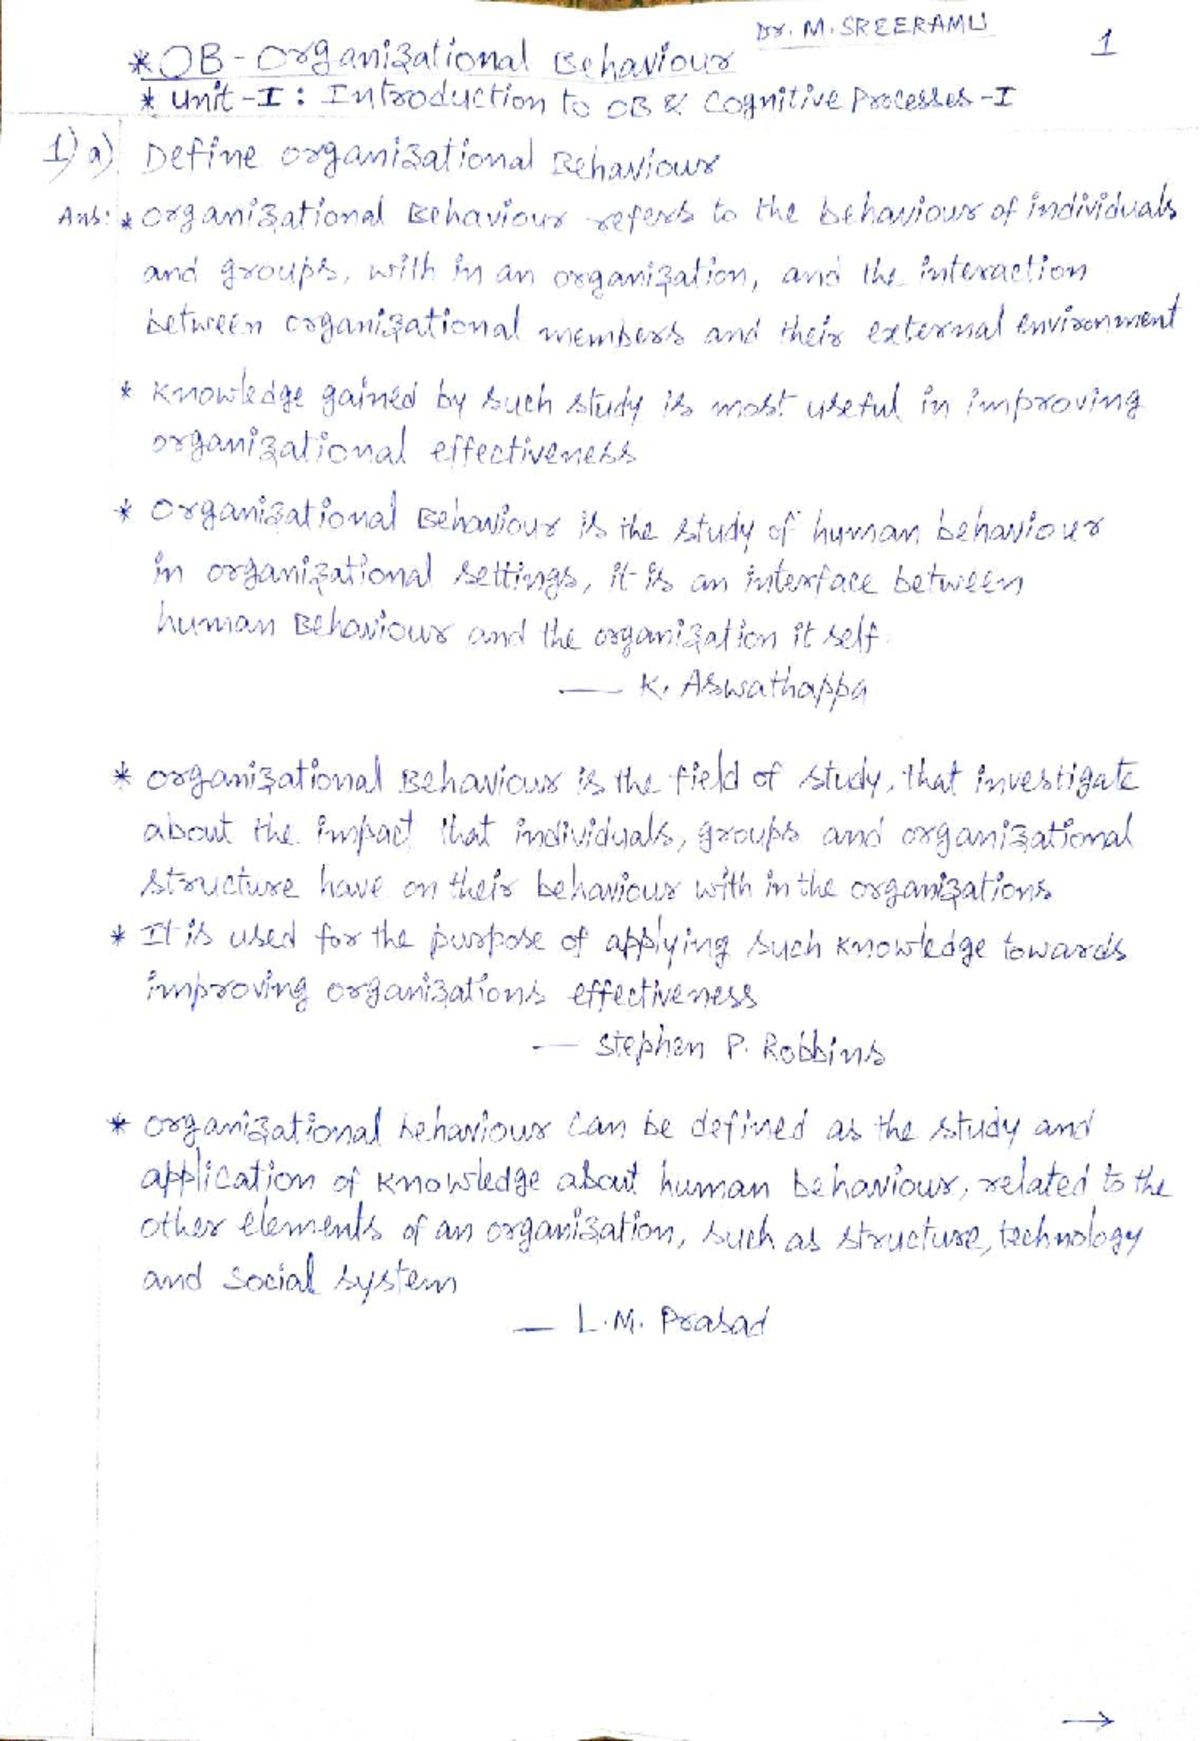 Dr. M. SREERAMU
1
* OB - Organizational Behaviour
* Unit - I : Introduction to OB & Cognitive Processes - I
1) a) Define organizational Behaviour
Ans: * Organizational Behaviour refers to the behaviour of individuals
and groups, with in an organization, and the interaction
between organizational members and their external environment
* Knowledge gained by such study is most useful in improving
organizational effectiveness
* Organizational Behaviour is the study of human behaviour
in organizational settings, it is an interface between
human Behaviour and the organization it self.
— K. Aswathappa
* Organizational Behaviour is the field of study, that investigate
about the impact that individuals, groups and organizational
structure have on their behaviour with in the organizations
* It is used for the purpose of applying such knowledge towards
improving organizations effectiveness
— Stephen P. Robbins
* Organizational behaviour can be defined as the study and
application of knowledge about human behaviour, related to the
other elements of an organization, such as structure, technology
and social system
— L.M. Prasad
→